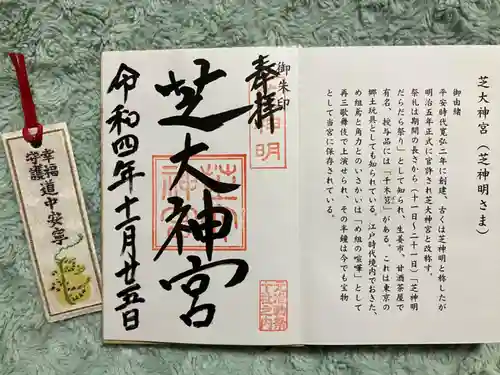 芝大神宮（芝神明さま）
御由緒
平安時代寛弘二年に創建、古くは芝神明と称したが
明治五年正式に官許され芝大神宮と改称す。
祭礼は期間の長さから（十一日～二十一日）「芝神明
だらだら祭り」として知られ、生姜市、甘酒茶屋で
有名、授与品には「千木筥」がある。これは東京の
郷土玩具としても知られている。江戸時代境内でおきた、
め組鳶と角力とのいさかいは「め組の喧嘩」として
再三歌舞伎で上演せられ、その半鐘は今でも宝物
として当宮に保存されている。
御朱印
奉拝
芝大神宮
令和四年十二月廿五日
幸福
守護
道中安寧